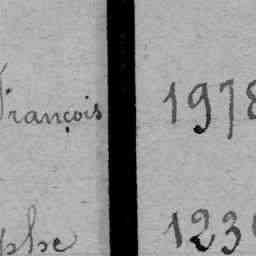 François 1978
phe 123